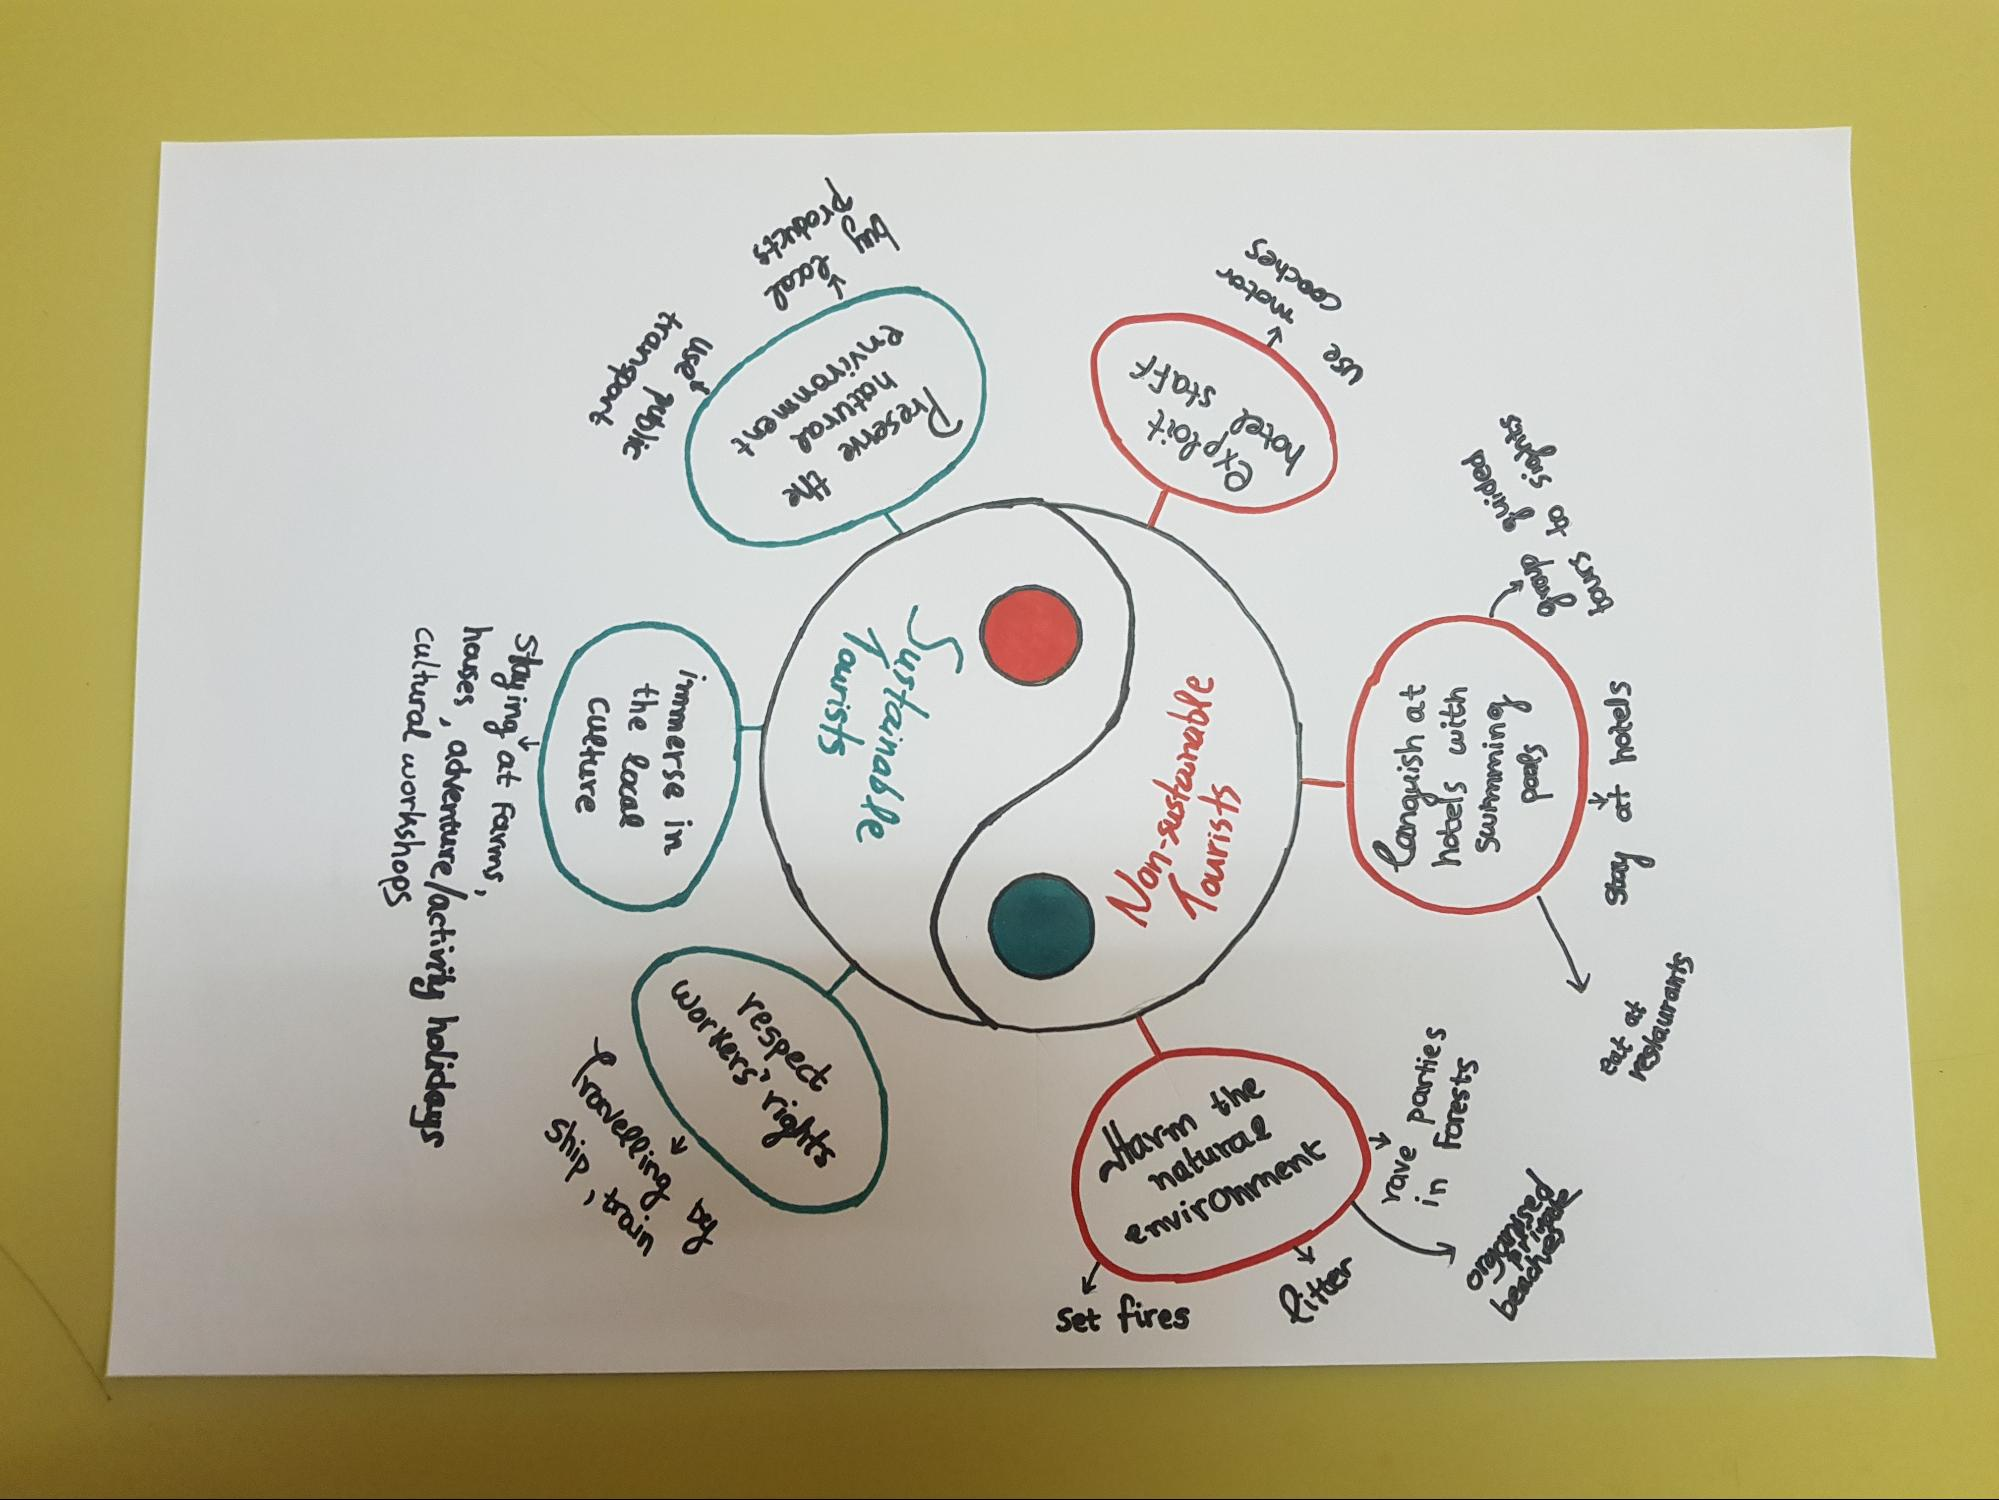 Sustainable
Tourists
Preserve the
natural
environment
buy local
products
use public
transport
immerse in
the local
culture
Staying at farms,
houses, adventure/activity holidays
cultural workshops
respect
workers' rights
Travelling by
ship, train
Non-sustainable
Tourists
exploit
hotel staff
use motor
coaches
Languish at
hotels with
swimming
pools
group guided
tours to sights
stay at hotels
eat at
restaurants
Harm the
natural
environment
rave parties
in forests
organised
private
beaches
litter
set fires